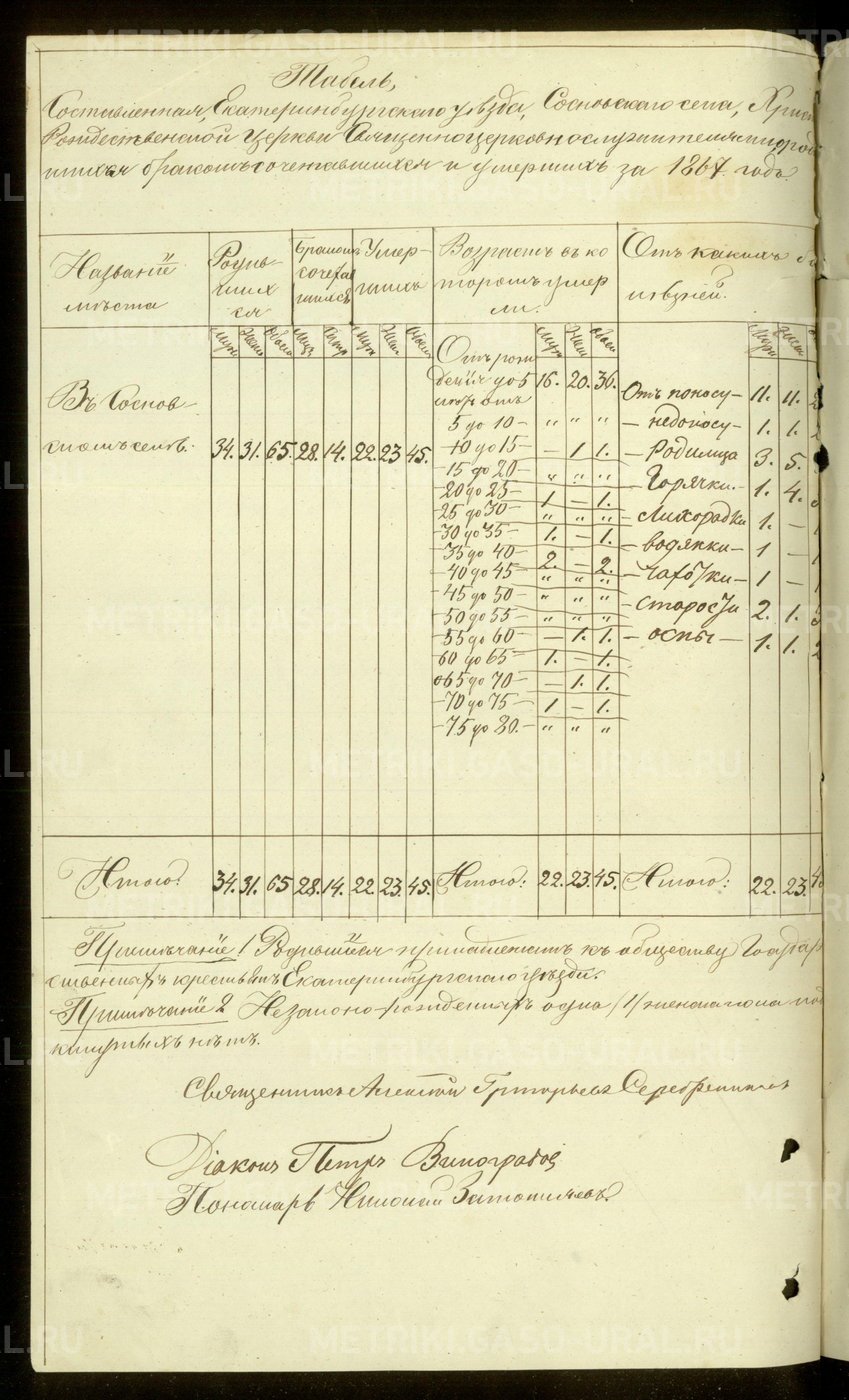 Табель,
Составленная, Екатеринбургскаго уѣзда, Сосновскаго села, Христо
Рождественской Церкви Священноцерковнослужителями о родив
шихся бракомъ сочетавшихся и умершихъ за 1867 годъ.
Названіе мѣста
Родив-шихся
Бракомъ сочетавшихся
Умер-шихъ
Возрастъ въ которомъ умерли.
Отъ какихъ болѣзней.
Муж. Жен. Обоего
Муж. Жен. Обоего
Муж. Жен. Обоего
Муж. Жен.
Въ Соснов-
скомъ селѣ. 34. 31. 65. 28. 14. 22. 23 45.
Отъ рож
денія до 5 16. 20. 36.
лѣтъ отъ
5 до 10 — " " "
10 до 15 — – 1 1.
15 до 20 — " " "
20 до 25 — 1 – 1.
25 до 30 — " " "
30 до 35 — 1. – 1.
35 до 40 — 2. – 2.
40 до 45 — " " "
45 до 50 — " " "
50 до 55 — " " "
55 до 60 — – 1. 1.
60 до 65 — 1. – 1.
65 до 70 — – 1. 1.
70 до 75 — 1 – 1.
75 до 80. — " " "
Отъ поносу — 11. 11.
— недоносу — 1. 1.
— Родимца 3. 5.
— Горячки. — 1. 4.
— Лихорадки 1. –
— водянки — 1 –
— чахотки — 1 –
— старости 2. 1. 3
— оспы — 1. 1. 2
Итого: 34. 31. 65 28. 14. 22. 23. 45. Итого: 22. 23. 45. Итого: 22. 23. 4
Примѣчаніе 1 Родившіеся принадлежатъ къ обществу Государ
ственныхъ крестьянъ Екатеринбургскаго уѣзда.
Примѣчаніе 2 Незаконо-рожденныхъ одна /1/ женскаго пола под
кинутыхъ нѣтъ.
Священникъ Алексѣй Григорьевъ Серебренниковъ
Діаконъ Петръ Виноградов
Пономарь Николай
METRIKI.GASO-URAL.RU